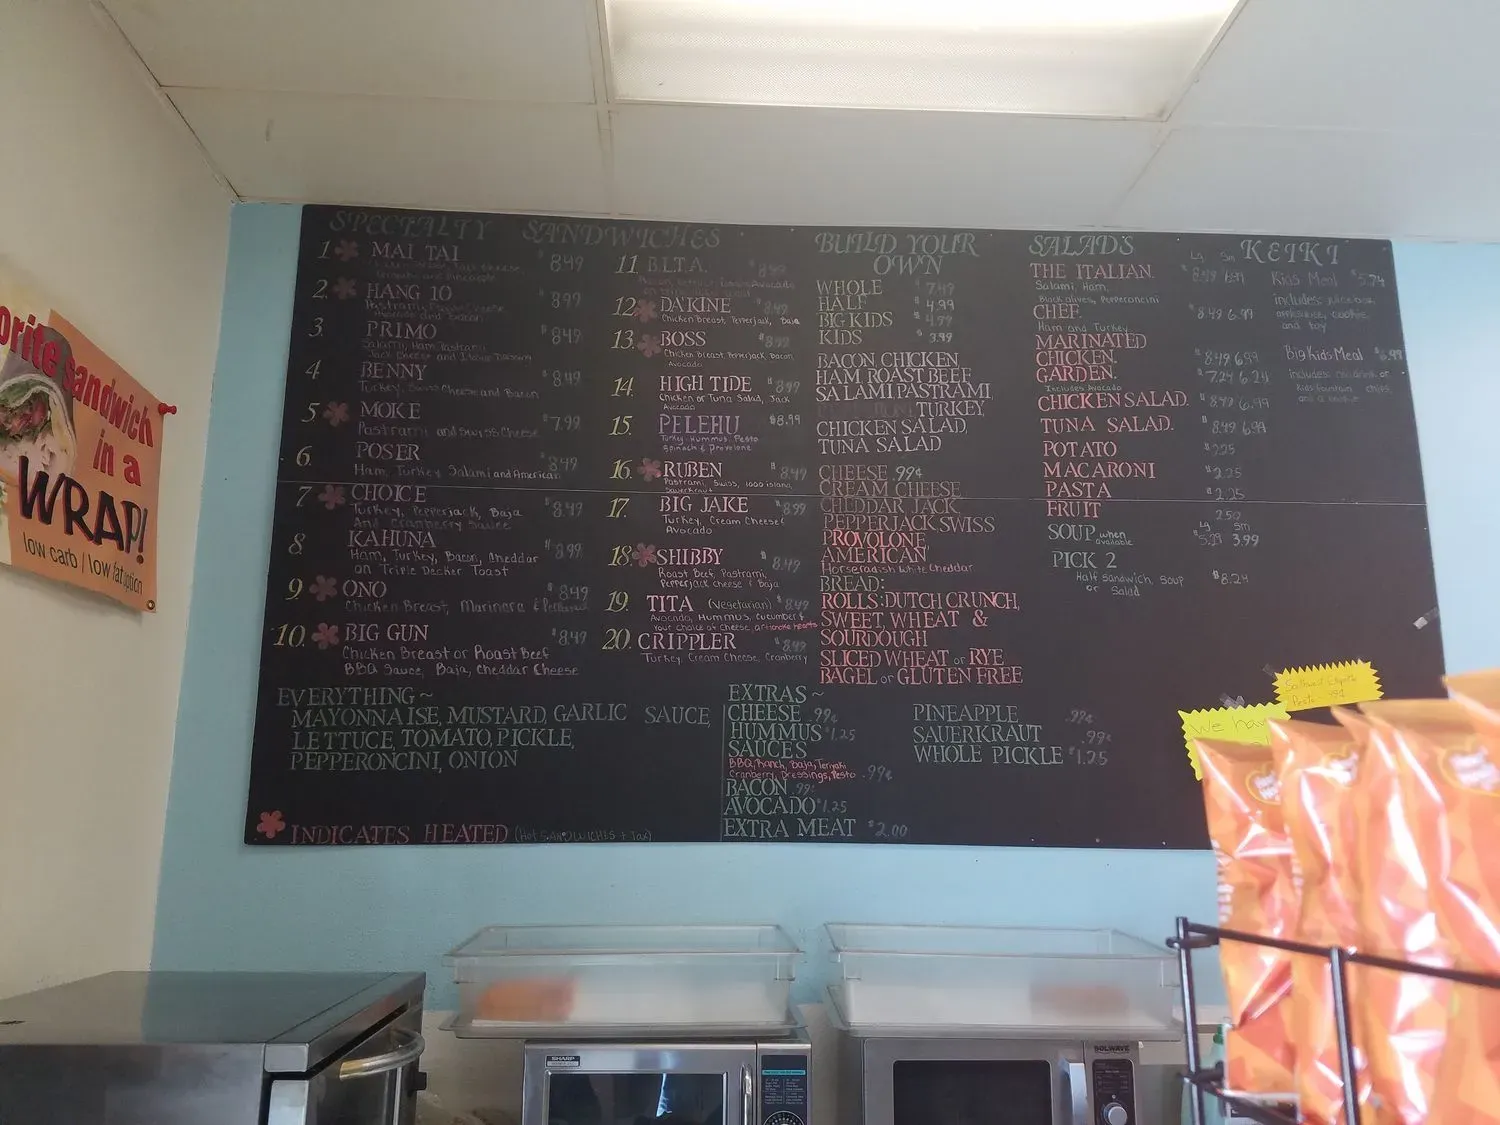 SPECIALTY SANDWICHES
1. MAI TAI 8.49
2. HANG 10 8.99
Pastrami, Pepper Cheese
Avocado and Bacon
3. PRIMO $8.49
Salami, Ham, Pastrami
Jack Cheese and Italian Dressing
4 BENNY $8.49
Turkey, Swiss Cheese and Bacon
5 MOKE $7.99
Pastrami and Swiss Cheese
6. POSER $8.49
Ham, Turkey, Salami and American
7 CHOICE $8.49
Turkey, Pepperjack, Baja
And Cranberry Sauce
8 KAHUNA $8.99
Ham, Turkey, Bacon, Cheddar
on Triple Decker Toast
9 ONO $8.49
Chicken Breast, Marinara &
10. BIG GUN $8.49
Chicken Breast or Roast Beef
BBQ Sauce, Baja, Cheddar Cheese
11 B.L.T.A. 8.49
12. DA'KINE $8.49
Chicken Breast, Pepperjack, Baja
13. BOSS $8.99
Chicken Breast, Pepperjack, Bacon
Avocado
14 HIGH TIDE $8.99
Chicken or Tuna Salad, Jack
Avocado
15. PELEHU $8.99
Turkey, Hummus, Pesto
Spinach & Provolone
16 RUBEN $8.49
Pastrami, Swiss, 1000 island,
Sauerkraut
17. BIG JAKE $8.99
Turkey, Cream Cheese &
Avocado
18. SHIBBY $8.49
Roast Beef, Pastrami,
Pepperjack cheese & Baja
19. TITA (Vegetarian) $8.49
Avocado, Hummus, Cucumber &
Your choice of Cheese, artichoke hearts
20. CRIPPLER $8.49
Turkey, Cream Cheese, Cranberry
BUILD YOUR
OWN
WHOLE $7.49
HALF $4.99
BIG KIDS $4.99
KIDS $3.99
BACON CHICKEN
HAM ROAST BEEF
SALAMI PASTRAMI
TURKEY,
CHICKEN SALAD
TUNA SALAD
CHEESE .99¢
CREAM CHEESE
CHEDDAR JACK
PEPPERJACK SWISS
PROVOLONE
AMERICAN
Horseradish White Cheddar
BREAD:
ROLLS: DUTCH CRUNCH,
SWEET, WHEAT &
SOURDOUGH
SLICED WHEAT or RYE
BAGEL or GLUTEN FREE
SALADS
Lg Sm
THE ITALIAN. $8.49 6.99
Salami, Ham,
Black olives, Pepperoncini
CHEF. $8.49 6.99
Ham and Turkey
MARINATED
CHICKEN. $8.49 6.99
GARDEN. $7.24 6.24
Includes Avocado
CHICKEN SALAD. $8.49 6.99
TUNA SALAD. $8.49 6.99
POTATO $2.25
MACARONI $2.25
PASTA $2.25
FRUIT 2.50
Lg Sm
SOUP when available $5.29 3.99
PICK 2
Half Sandwich, Soup $8.24
or Salad
KEIKI
Kids Meal $5.74
includes juice box,
applesauce, cookie,
and toy
Big Kids Meal $6.99
includes: med. drink or
kids fountain chips,
and a cookie
EVERYTHING~
MAYONNAISE, MUSTARD, GARLIC SAUCE
LETTUCE, TOMATO, PICKLE,
PEPPERONCINI, ONION
INDICATES HEATED (Hot SANDWICHES + Tax)
EXTRAS~
CHEESE .99¢
HUMMUS $1.25
SAUCES
BBQ, Ranch, Baja, Teriyaki
Cranberry, Dressings, Pesto .99¢
BACON .99¢
AVOCADO $1.25
EXTRA MEAT $2.00
PINEAPPLE .99¢
SAUERKRAUT .99¢
WHOLE PICKLE $1.25
Southwest Chipotle
Pesto .99¢
We hav
orite sandwich
in a
WRAP!
low carb / low fat option
SHARP
SOLWAVE